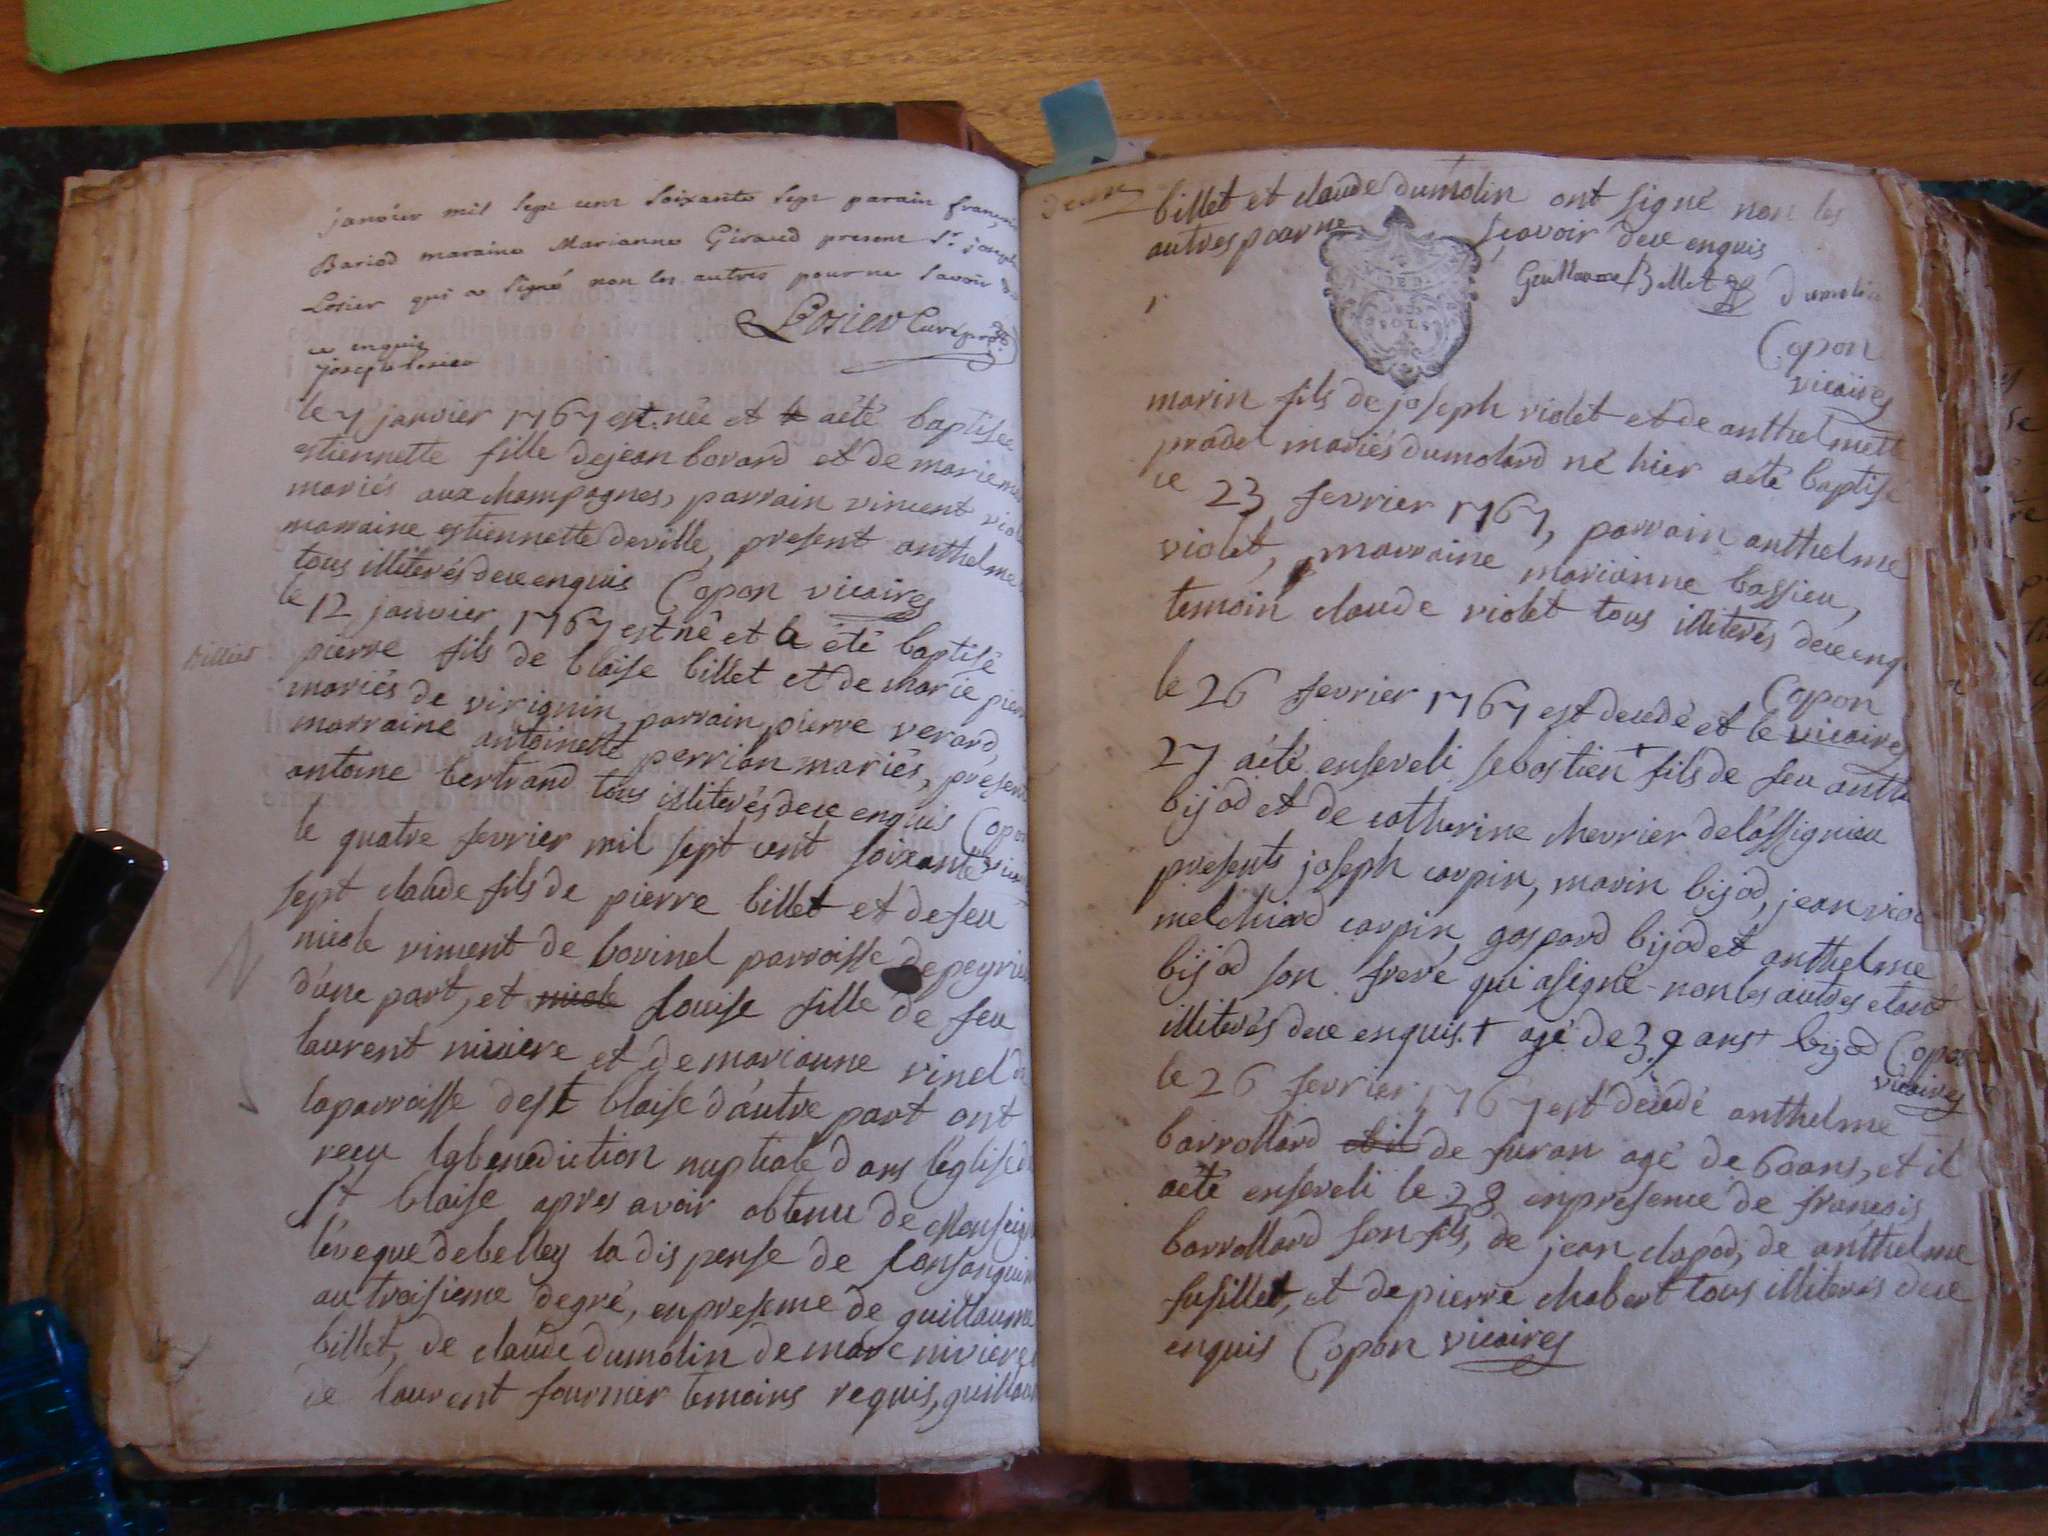 janvier mil sept cent soixante sept parain françois
Bariod maraine Marianne Giraud present Sr joseph
Losier qui a signé non les autres pour ne savoir de
ce enquis
Losier Curé
joseph losier
le 7 janvier 1767 est née et a été baptisée
estiennette fille de jean bovard et de marie
mariés aux champagnes, parrain vincent
marraine estiennette deville, present anthelme
tous illiterés de ce enquis Copon vicaires
le 12 janvier 1767 est né et a été baptisé
billiet
pierre fils de blaise billet et de marie
mariés de virignin, parrain pierre verard,
marraine antoinette perrion mariés, present
antoine bertrand tous illiterés de ce enquis Copon
vicaires
le quatre fevrier mil sept cent soixante
sept claude fils de pierre billet et de feu
nicole viment de bovinel parroisse de peyrieu
d'une part, et nicole louise fille de feu
laurent niviere et de marianne vinel de
la parroisse de st blaise d'autre part ont
reçu la benediction nuptiale dans l'eglise de
st blaise apres avoir obtenu de Monseign
l'eveque de belley la dispense de Consanguin
au troisieme degré, en presence de guillaume
billet, de claude dumolin de marc niviere
de laurent fournier temoins requis, guillaume
billet et claude dumolin ont signé non les
autres pour ne sçavoir de ce enquis
Guillaume Billet dumolin
Copon
vicaires
marin fils de joseph violet et de anthelmette
pradel mariés du molard né hier a été baptisé
ce 23 fevrier 1767, parrain anthelme
violet, marraine marianne bassieu,
temoin claude violet tous illiterés de ce enq
Copon
vicaires
le 26 fevrier 1767 est decedé et le
27 a été enseveli sebastien + fils de feu anthe
bijod et de catherine chevrier de l'assignieu
presents joseph carpin, marin bijod, jean
melchiord carpin, gaspard bijod et anthelme
bijod son frere qui a signé non les autres etant
illiterés de ce enquis. + agé de 39 ans + bijod Copon
vicaires
le 26 fevrier 1767 est decedé anthelme
barrollard et il de furan agé de 60 ans, et il
a été enseveli le 28 en presence de françois
barrollard son fils, de jean clapod, de anthelme
fusillet, et de pierre chabert tous illiterés de ce
enquis Copon vicaires